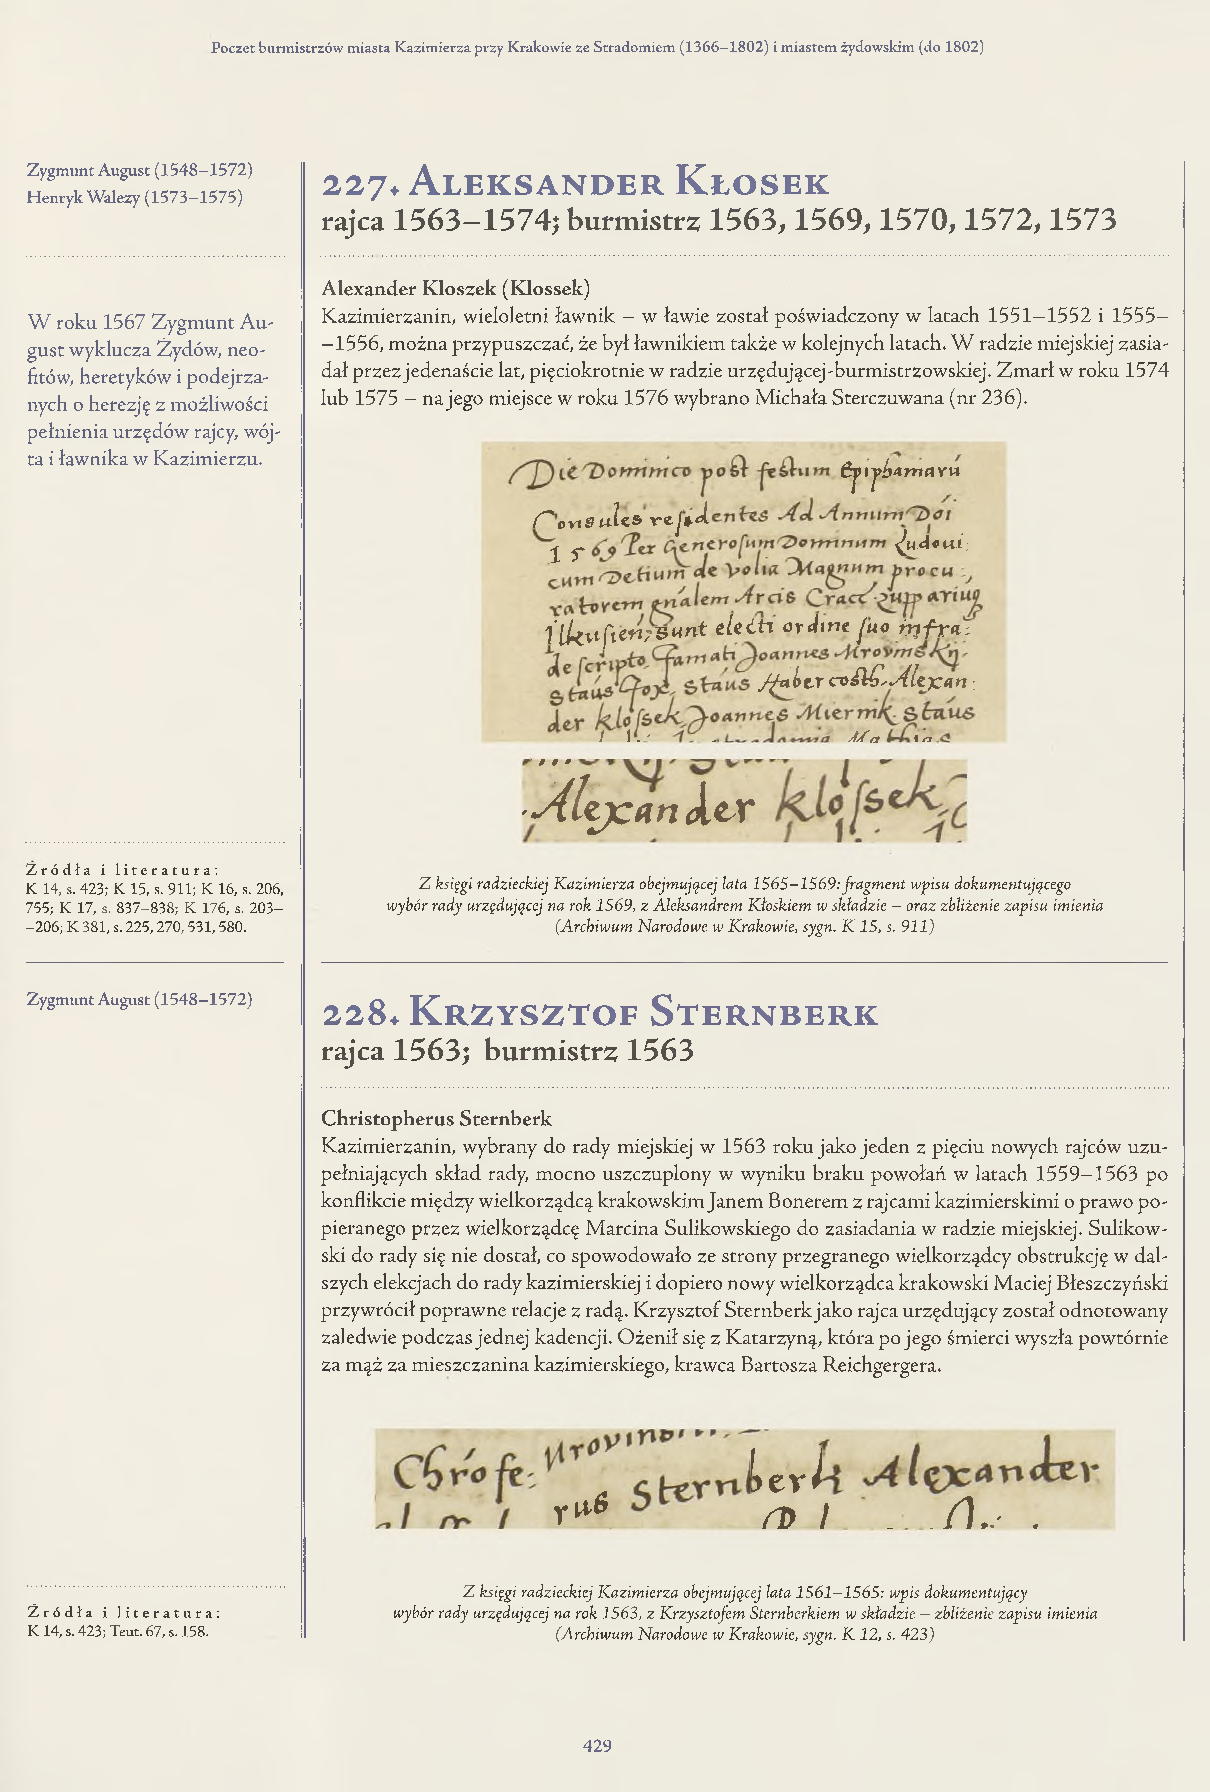 Poczet burmistrzów miasta Kazimierza przy Krakowie ze Stradomiem (1366–1802) i miastem żydowskim (do 1802)
Zygmunt August (1548–1572)
Henryk Walezy (1573–1575)
W roku 1567 Zygmunt Au-
gust wyklucza Żydów, neo-
fitów, heretyków i podejrza-
nych o herezję z możliwości
pełnienia urzędów rajcy, wój-
ta i ławnika w Kazimierzu.
Źródła i literatura:
K 14, s. 423; K 15, s. 911; K 16, s. 206,
755; K 17, s. 837–838; K 176, s. 203–
–206; K 381, s. 225, 270, 531, 580.
227. Aleksander Kłosek
rajca 1563–1574; burmistrz 1563, 1569, 1570, 1572, 1573
Alexander Kloszek (Klossek)
Kazimierzanin, wieloletni ławnik – w ławie został poświadczony w latach 1551–1552 i 1555–
–1556, można przypuszczać, że był ławnikiem także w kolejnych latach. W radzie miejskiej zasia-
dał przez jedenaście lat, pięciokrotnie w radzie urzędującej-burmistrzowskiej. Zmarł w roku 1574
lub 1575 – na jego miejsce w roku 1576 wybrano Michała Sterczuwana (nr 236).
Die Dominico post festum Epiphaniarū
Consules residentes Ad Annum Dōi
1569 Per Generosum Dominum Ludoui
cum Detium de Volia Magnum procu
ratorem gnalem Arcis Cracc
sunt electi ordine suo infra
descripto Famati Joannes
staus staus Alexan
der klossek Joannes Miernik staus
Alexander klossek
Z księgi radzieckiej Kazimierza obejmującej lata 1565–1569: fragment wpisu dokumentującego
wybór rady urzędującej na rok 1569, z Aleksandrem Kłoskiem w składzie – oraz zbliżenie zapisu imienia
(Archiwum Narodowe w Krakowie, sygn. K 15, s. 911)
Zygmunt August (1548–1572)
Źródła i literatura:
K 14, s. 423; Teut. 67, s. 158.
228. Krzysztof Sternberk
rajca 1563; burmistrz 1563
Christopherus Sternberk
Kazimierzanin, wybrany do rady miejskiej w 1563 roku jako jeden z pięciu nowych rajców uzu-
pełniających skład rady, mocno uszczuplony w wyniku braku powołań w latach 1559–1563 po
konflikcie między wielkorządcą krakowskim Janem Bonerem z rajcami kazimierskimi o prawo po-
pieranego przez wielkorządcę Marcina Sulikowskiego do zasiadania w radzie miejskiej. Sulikow-
ski do rady się nie dostał, co spowodowało ze strony przegranego wielkorządcy obstrukcję w dal-
szych elekcjach do rady kazimierskiej i dopiero nowy wielkorządca krakowski Maciej Błeszczyński
przywrócił poprawne relacje z radą. Krzysztof Sternberk jako rajca urzędujący został odnotowany
zaledwie podczas jednej kadencji. Ożenił się z Katarzyną, która po jego śmierci wyszła powtórnie
za mąż za mieszczanina kazimierskiego, krawca Bartosza Reichgergera.
Chrofe:
rus Sternberk Alexander
Z księgi radzieckiej Kazimierza obejmującej lata 1561–1565: wpis dokumentujący
wybór rady urzędującej na rok 1563, z Krzysztofem Sternberkiem w składzie – zbliżenie zapisu imienia
(Archiwum Narodowe w Krakowie, sygn. K 12, s. 423)
429